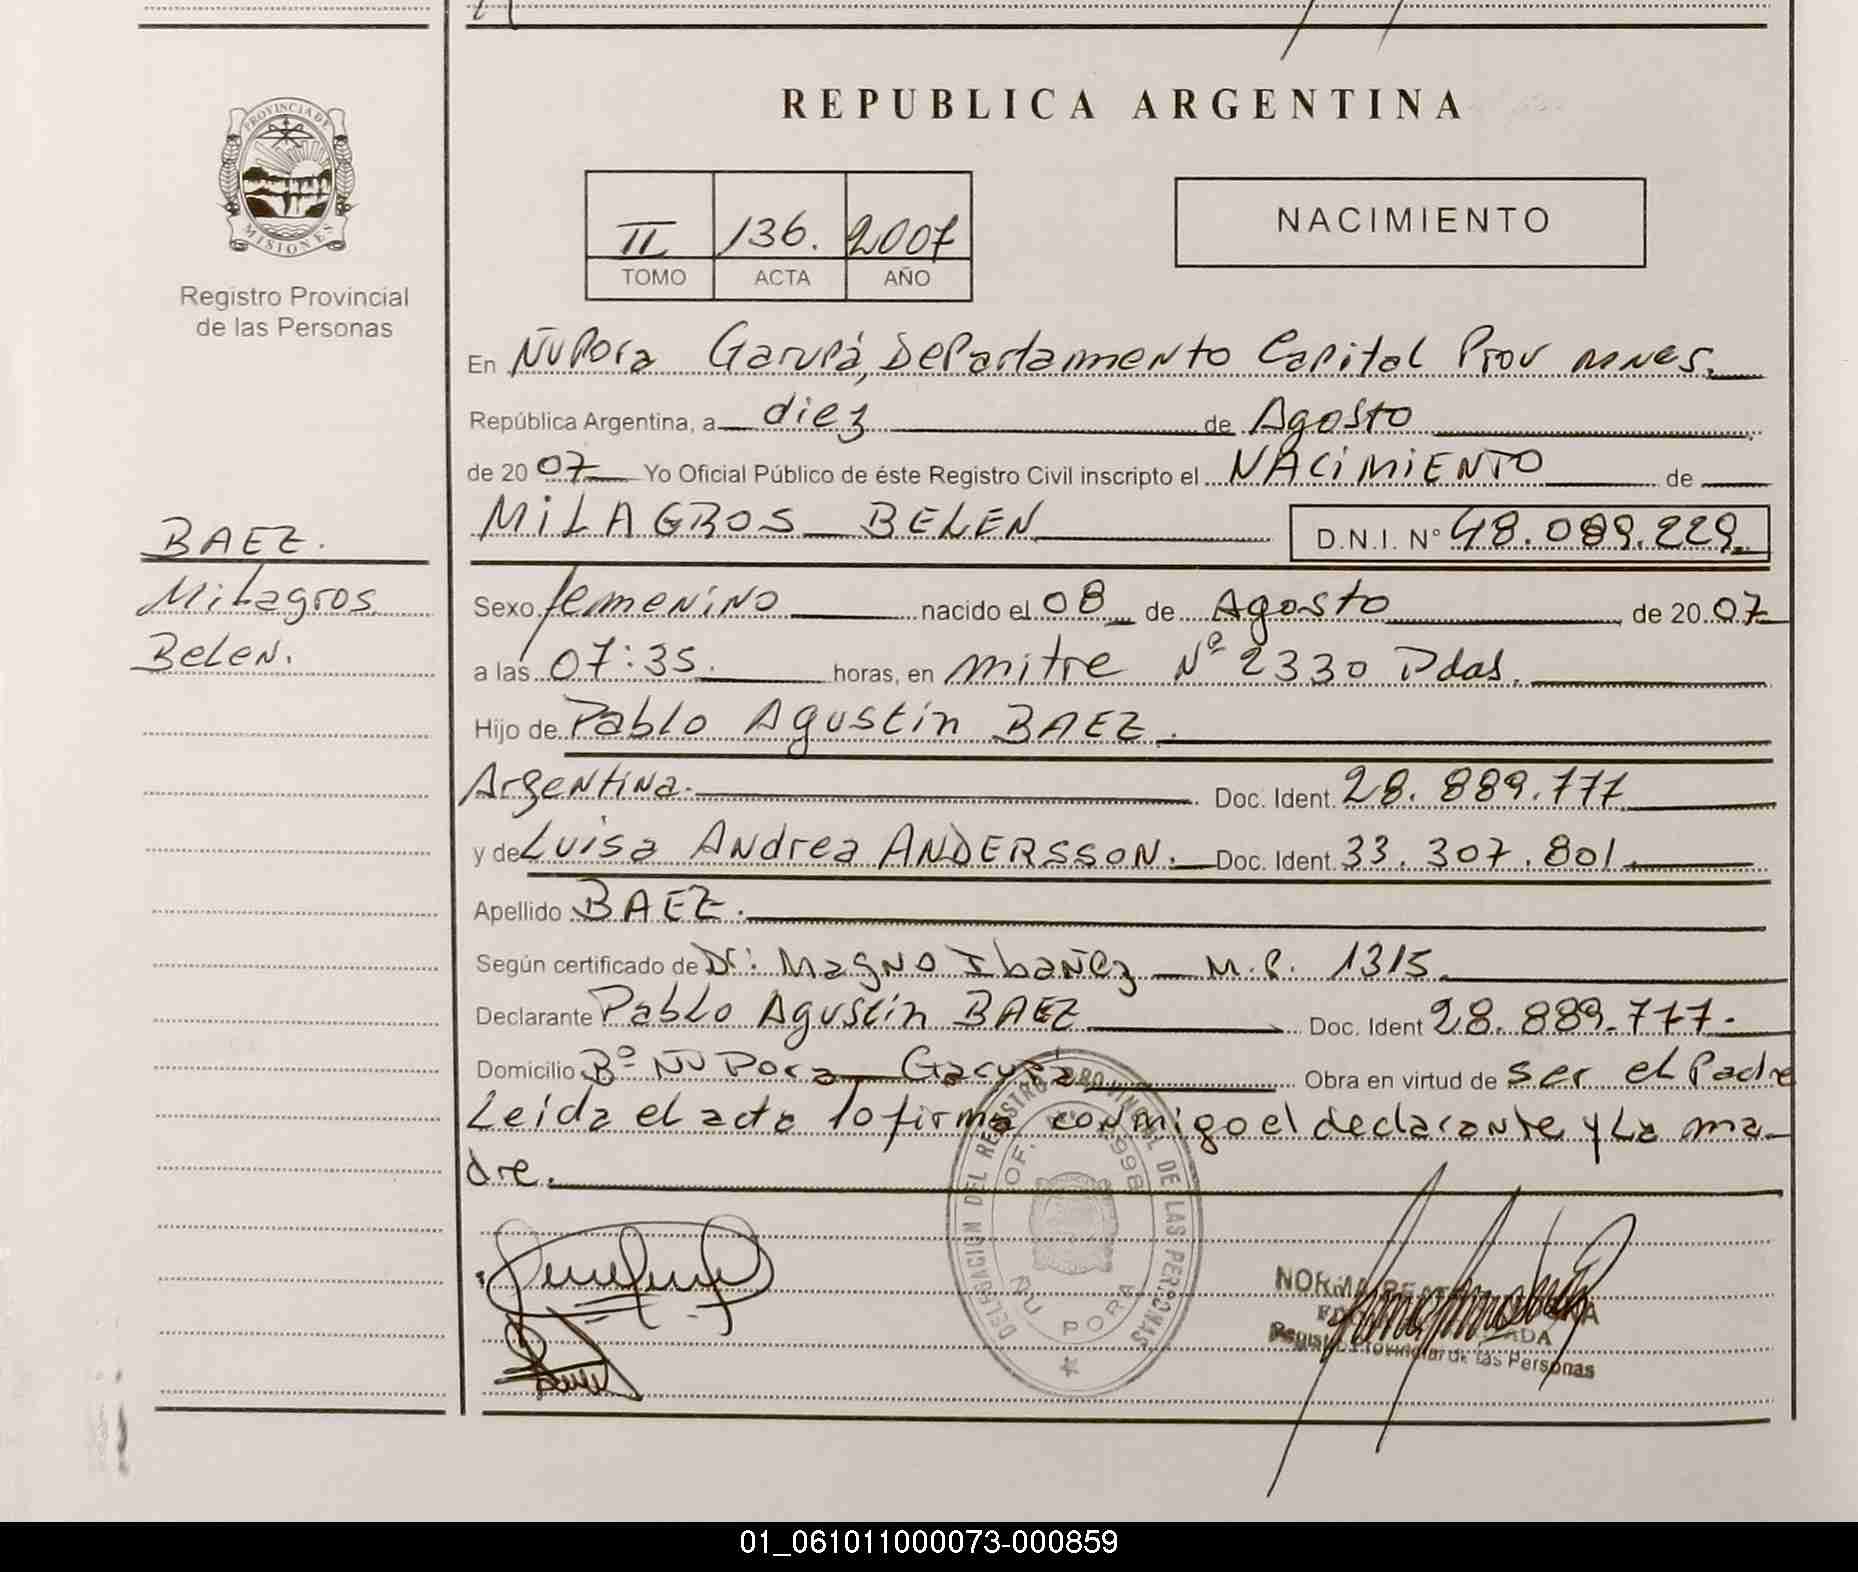 REPUBLICA ARGENTINA
PROVINCIA DE
MISIONES
Registro Provincial
de las Personas
II 136. 2007
TOMO ACTA AÑO
NACIMIENTO
BAEZ.
Milagros
Belen.
En Ñu Pora Garupá, Departamento Capital Prov mnes.
República Argentina, a diez de Agosto
de 2007 Yo Oficial Público de éste Registro Civil inscripto el NACIMIENTO de
MILAGROS BELEN D.N.I. Nº 48.089.229
Sexo femenino nacido el 08 de Agosto de 2007
a las 07:35. horas, en mitre Nº 2330 Pdas.
Hijo de Pablo Agustin BAEZ.
Argentina. Doc. Ident. 28.889.777
y de Luisa Andrea ANDERSSON. Doc. Ident. 33.307.801
Apellido BAEZ.
Según certificado de Dr: Magno Ibañez M.P. 1315
Declarante Pablo Agustin BAEZ Doc. Ident 28.889.777.
Domicilio Bº Ñu Pora Garupá Obra en virtud de ser el Padre
Leida el acta lo firma conmigo el declarante y La ma-
dre.
DELEGACION DEL REGISTRO PROVINCIAL DE LAS PERSONAS
OF. Nº 2998
ÑU PORA
NORMA
Registro Provincial de las Personas
01_061011000073-000859